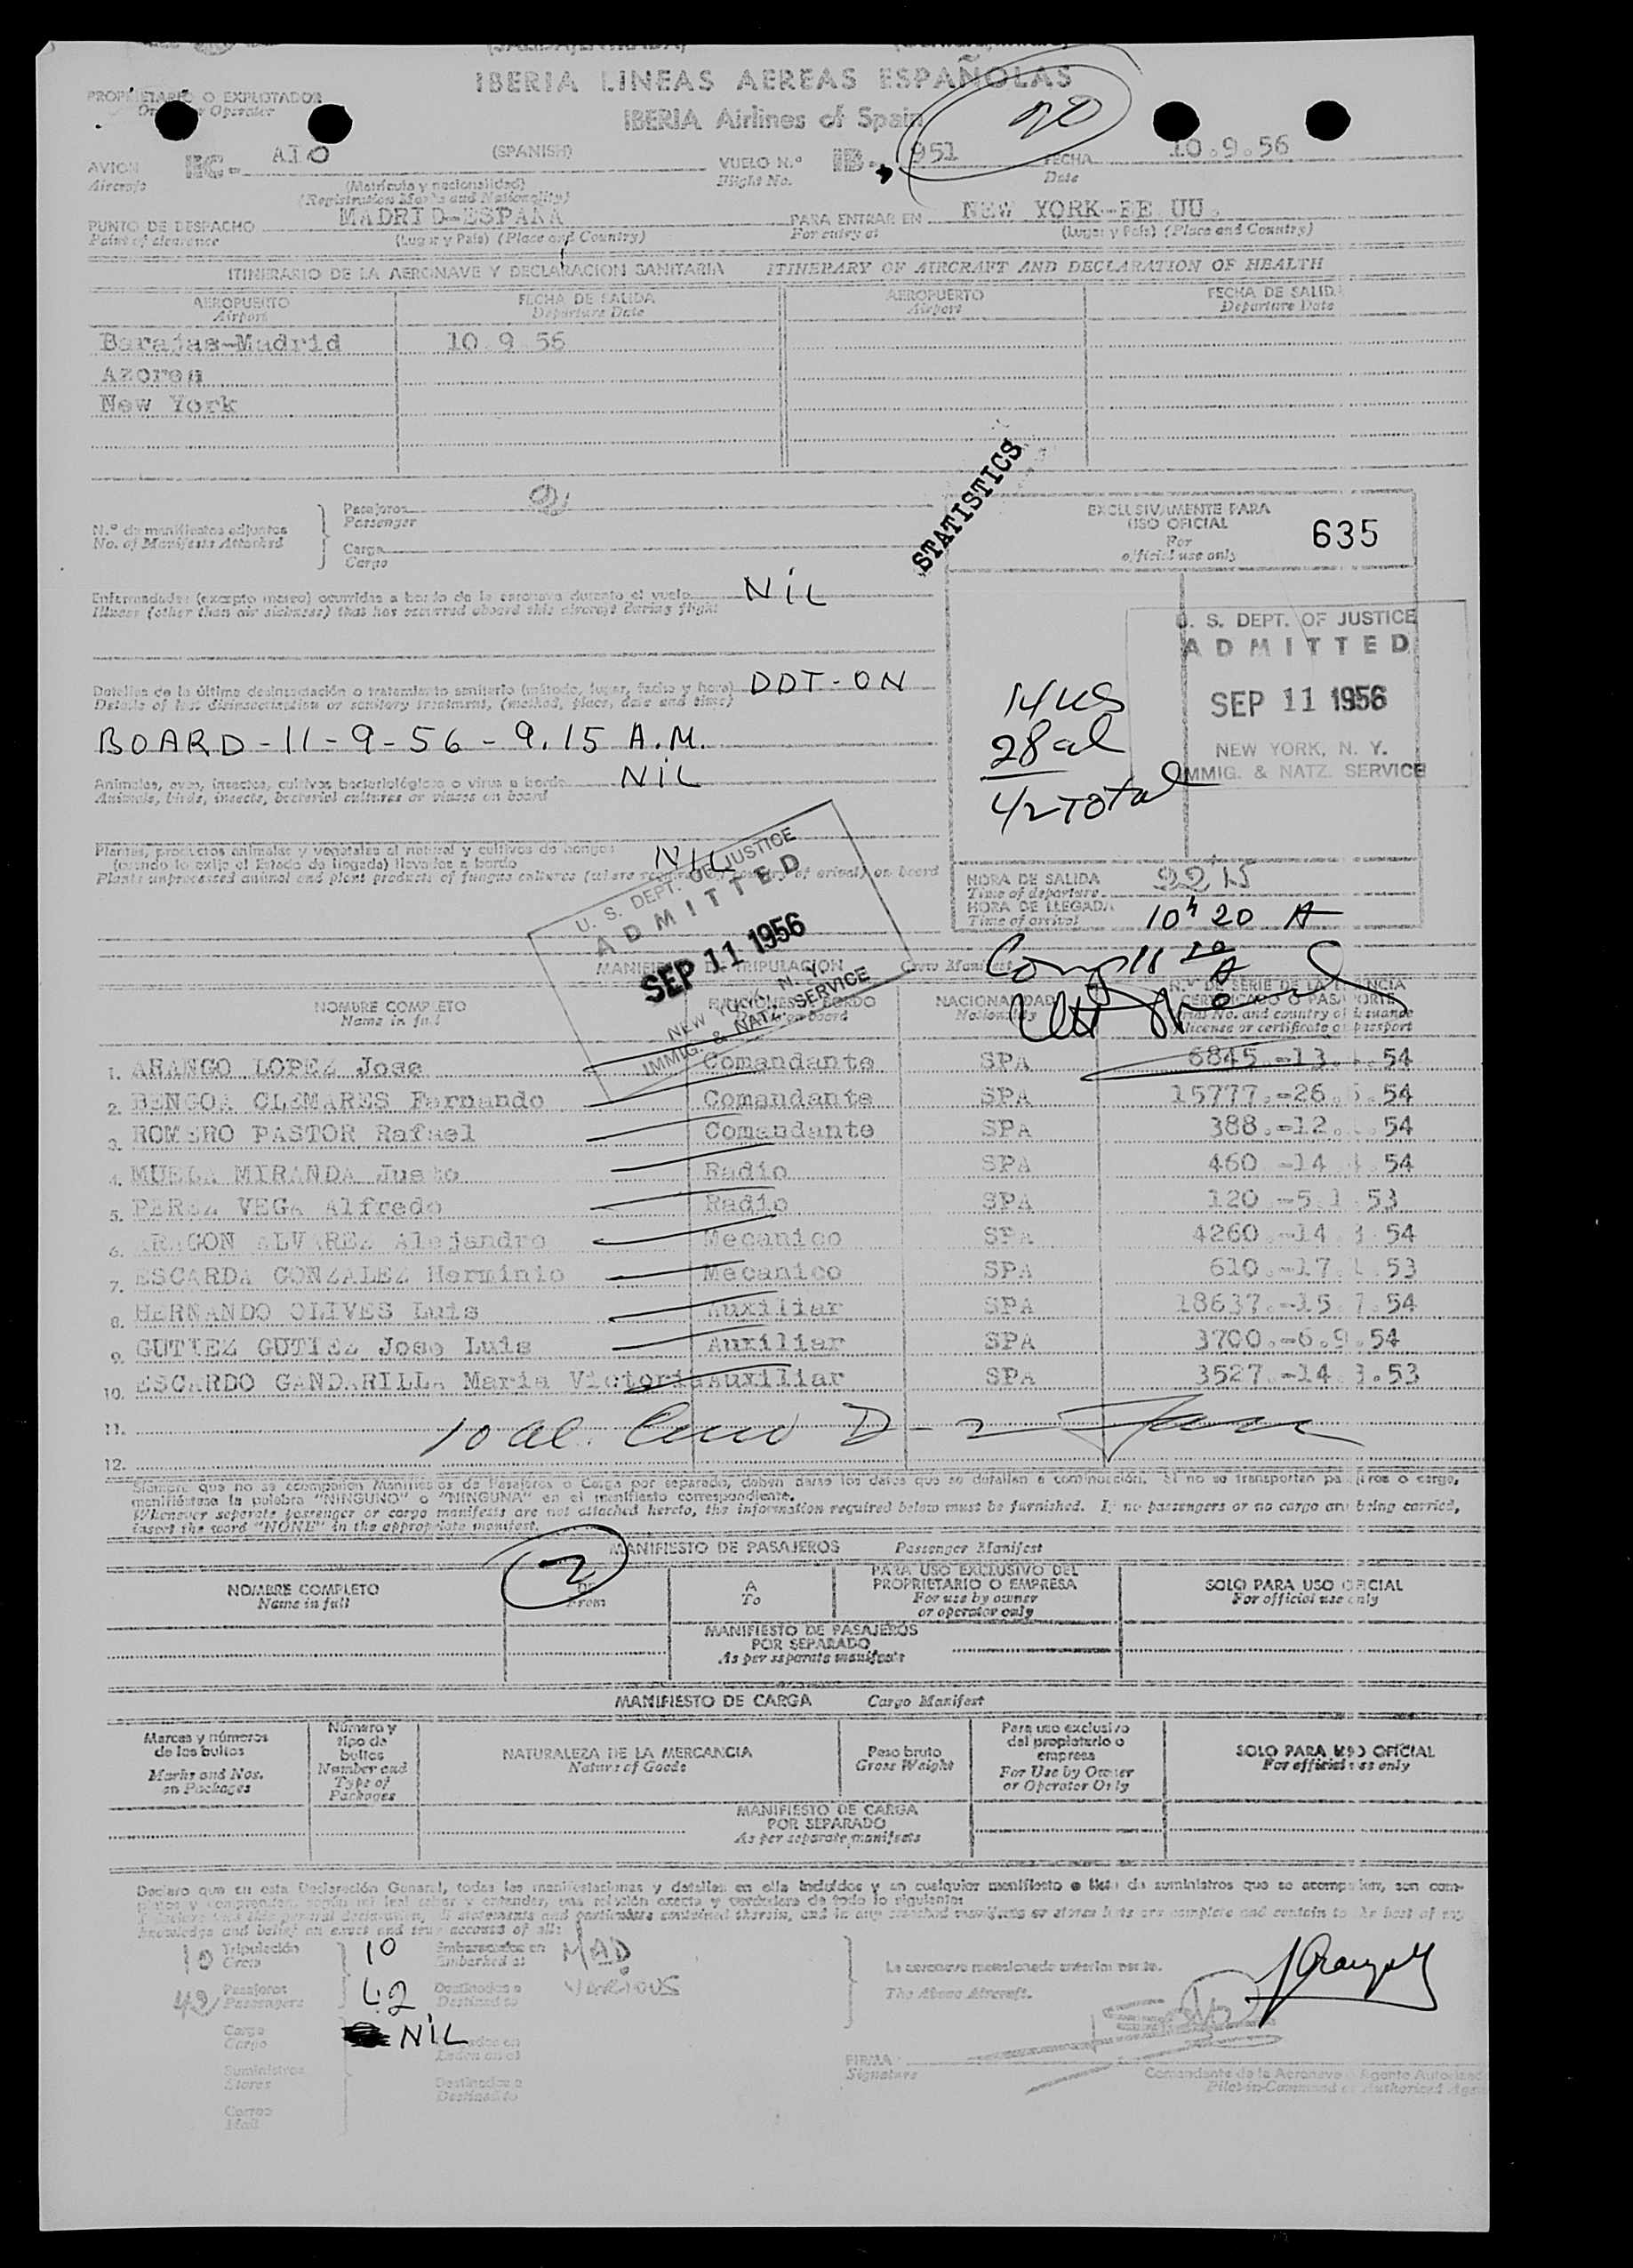 IBERIA LINEAS AEREAS ESPAÑOLAS
PROPIETARIO O EXPLOTADOR
Owner or Operator
IBERIA Airlines of Spain
20
AVION EC- AIO (SPANISH) VUELO N.º IB- 951 FECHA 10.9.56
Aircraft (Matrícula y nacionalidad) Flight No. Date
(Registration Marks and Nationality)
PUNTO DE DESPACHO MADRID-ESPAÑA PARA ENTRAR EN NEW YORK-EE UU.
Point of clearence (Lugar y País) (Place and Country) For entry at (Lugar y País) (Place and Country)
ITINERARIO DE LA AERONAVE Y DECLARACION SANITARIA ITINERARY OF AIRCRAFT AND DECLARATION OF HEALTH
AEROPUERTO FECHA DE SALIDA AEROPUERTO FECHA DE SALIDA
Airport Departure Date Airport Departure Date
Barajas-Madrid 10.9.56
Azores
New York
STATISTICS
N.º de manifiestos adjuntos
No. of Manifests Attached
Pasajeros
Passenger
Carga
Cargo
EXCLUSIVAMENTE PARA
USO OFICIAL
For
official use only
635
Enfermedades (excepto mareo) ocurridas a bordo de la aeronave durante el vuelo NIL
Illness (other than air sickness) that has occurred aboard this aircraft during flight
U. S. DEPT. OF JUSTICE
ADMITTED
SEP 11 1956
NEW YORK, N. Y.
IMMIG. & NATZ. SERVICE
14 US
28 al
42 Total
Detalles de la última desinsectación o tratamiento sanitario (método, lugar, fecha y hora) DDT-ON
Details of last disinsectisation or sanitary treatment, (method, place, date and time)
BOARD-11-9-56-9.15 A.M.
Animales, aves, insectos, cultivos bacteriológicos o virus a bordo NIL
Animals, birds, insects, bacterial cultures or viuses on board
Plantas, productos animales y vegetales al natural y cultivos de hongos NIL
(cuando lo exija el Estado de llegada) llevados a bordo
Plants unprocessed animal and plant products of fungus cultures (where required by country of arival) on board
HORA DE SALIDA 2215
Time of departure
HORA DE LLEGADA 10h 20 A
Time of arrival
U. S. DEPT. OF JUSTICE
ADMITTED
SEP 11 1956
NEW YORK, N. Y.
IMMIG. & NATZ. SERVICE
MANIFIESTO DE TRIPULACION Crew Manifest
NOMBRE COMPLETO FUNCIONES A BORDO NACIONALIDAD N.º DE SERIE DE LA LICENCIA
Name in full on board Nationality CERTIFICADO O PASAPORTE
Serial No. and country of issuance
license or certificate or passport
1. ARANGO LOPEZ Jose Comandante SPA 6845.-13. .54
2. BENGOA CLEMARES Fernando Comandante SPA 15777.-26. .54
3. ROMERO PASTOR Rafael Comandante SPA 388.-12. .54
4. MUELA MIRANDA Justo Radio SPA 460 -14 .54
5. PEREZ VEGA Alfredo Radio SPA 120.-5.1.53
6. ARAGON ALVAREZ Alejandro Mecanico SPA 4260.-14. .54
7. ESCARDA GONZALEZ Herminio Mecanico SPA 610.-17. .53
8. HERNANDO OLIVES Luis Auxiliar SPA 18637.-15.7.54
9. GUTIEZ GUTIEZ Jose Luis Auxiliar SPA 3700.-6.9.54
10. ESCARDO GANDARILLA Maria Victoria Auxiliar SPA 3527.-14. .53
11.
10 al. Crew D-2
12.
Siempre que no se acompañen Manifiestos de Pasajeros o Carga por separado, deben darse los datos que se detallan a continuación. Si no se transportan pasajeros o carga,
manifiéstese la palabra "NINGUNO" o "NINGUNA" en el manifiesto correspondiente.
Whenever separate passenger or cargo manifests are not attached hereto, the information required below must be furnished. If no passengers or no cargo are being carried,
insert the word "NONE" in the appropriate manifest.
MANIFIESTO DE PASAJEROS Passenger Manifest
2
NOMBRE COMPLETO DE A PARA USO EXCLUSIVO DEL SOLO PARA USO OFICIAL
Name in full From To PROPIETARIO O EMPRESA For official use only
For use by owner
or operator only
MANIFIESTO DE PASAJEROS
POR SEPARADO
As per separate manifests
MANIFIESTO DE CARGA Cargo Manifest
Marcas y números
de los bultos
Marks and Nos.
on Packages
Número y
tipo de
bultos
Number and
Type of
Packages
NATURALEZA DE LA MERCANCIA
Nature of Goods
Peso bruto
Gross Weight
Para uso exclusivo
del propietario o
empresa
For Use by Owner
or Operator Only
SOLO PARA USO OFICIAL
For official use only
MANIFIESTO DE CARGA
POR SEPARADO
As per separate manifests
Declaro que en esta Declaración General, todas las manifestaciones y detalles en ella incluídos y en cualquier manifiesto o lista de suministros que se acompañen, son com-
pletos y comprenden, según mi leal saber y entender, una relación exacta y verdadera de todo lo siguiente:
10 Tripulación 10 Embarcados en MAD
Crew Embarked at
42 Pasajeros 42 Destinados a VARIOUS
Passengers Destined to
Carga NIL
Cargo Laden on at
Suministros
Stores Destinados a
Destined to
Correo
Mail
La aeronave mencionada anteriormente.
The Above Aircraft.
FIRMA
Signature
Comandante de la Aeronave o Agente Autorizado
Pilot-in-Command or Authorized Agent